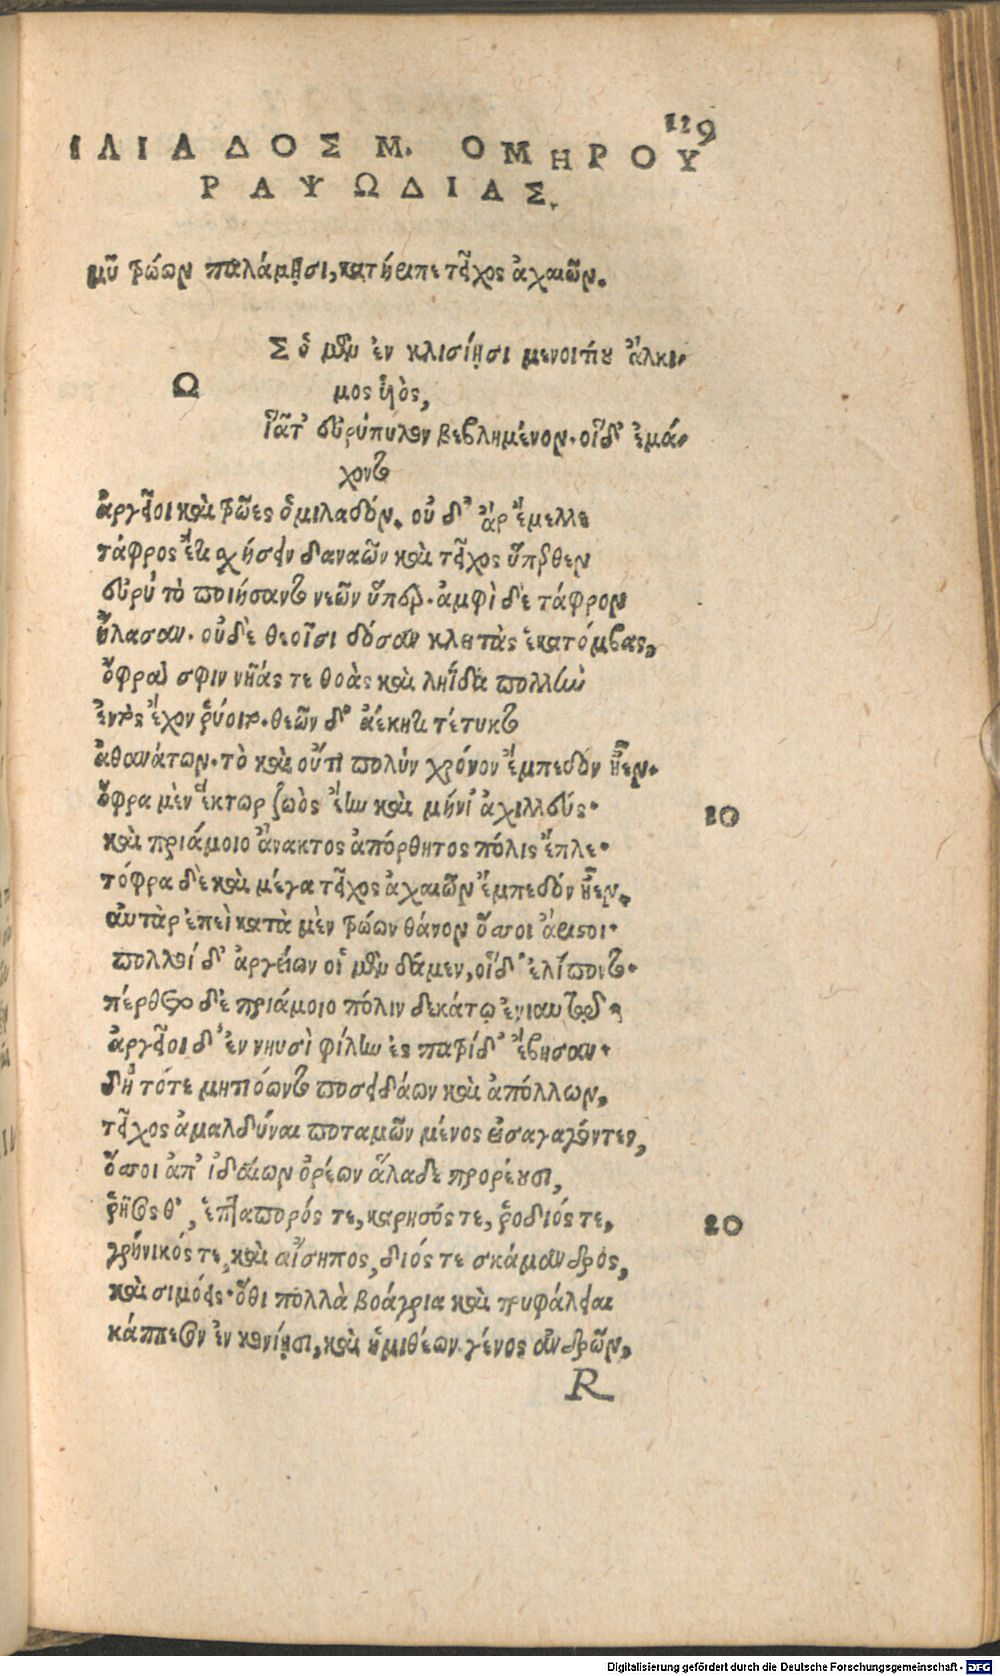 129
ΙΛΙΑΔΟΣ Μ. ΟΜΗΡΟΥ
ΡΑΨΩΔΙΑΣ.
μῦ τρώων παλάμῃσι, κατήριπε τεῖχος ἀχαιῶν.
Σ ὁ μὲν ἐν κλισίῃσι μενοιτίου ἄλκι-
Ω
μος υἱὸς,
ἰᾶτ' εὐρύπυλον βεβλημένον. οἱ δ' ἐμά-
χοντο
ἀργεῖοι καὶ τρῶες ὁμιλαδόν. οὐ δ' ἄρ' ἔμελλε
τάφρος ἔτι σχήσειν δαναῶν καὶ τεῖχος ὕπερθεν
εὐρὺ τὸ ποιήσαντο νεῶν ὕπερ. ἀμφὶ δὲ τάφρον
ἤλασαν. οὐδὲ θεοῖσι δόσαν κλειτὰς ἑκατόμβας,
ὄφρα σφιν νῆάς τε θοὰς καὶ ληΐδα πολλὴν
ἐντὸς ἔχον ῥύοιτο. θεῶν δ' ἀέκητι τέτυκτο
ἀθανάτων. τὸ καὶ οὔτι πολὺν χρόνον ἔμπεδον ἦεν.
ὄφρα μὲν ἕκτωρ ζωὸς ἔην καὶ μήνι' ἀχιλλεύς.
10
καὶ πριάμοιο ἄνακτος ἀπόρθητος πόλις ἔπλε.
τόφρα δὲ καὶ μέγα τεῖχος ἀχαιῶν ἔμπεδον ἦεν.
αὐτὰρ ἐπεὶ κατὰ μὲν τρώων θάνον ὅσσοι ἄριστοι.
πολλοὶ δ' ἀργείων οἱ μὲν δάμεν, οἱ δ' ἐλίποντο.
πέρθετο δὲ πριάμοιο πόλιν δεκάτῳ ἐνιαυτῷ
ἀργεῖοι δ' ἐν νηυσὶ φίλην ἐς πατρίδ' ἔβησαν.
δὴ τότε μητιόωντο ποσειδάων καὶ ἀπόλλων,
τεῖχος ἀμαλδύναι ποταμῶν μένος εἰσαγαγόντες,
ὅσσοι ἀπ' ἰδαίων ὀρέων ἅλαδε προρέουσι,
ῥῆσός θ', ἑπτάπορός τε, κάρησός τε, ῥοδιός τε,
20
γρήνικός τε, καὶ αἴσηπος, διός τε σκάμανδρος,
καὶ σιμόεις. ὅθι πολλὰ βοάγρια καὶ τρυφάλειαι
κάππεσον ἐν κονίῃσι, καὶ ἡμιθέων γένος ἀνδρῶν,
R
Digitalisierung gefördert durch die Deutsche Forschungsgemeinschaft - DFG